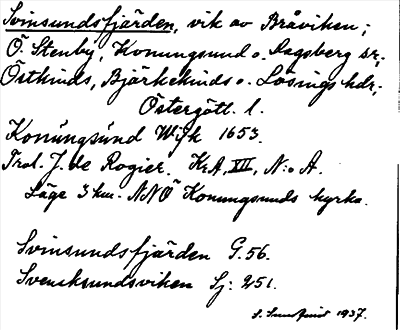 Svinsundsfjärden, vik av Bråviken;
Ö. Stenby, Konungsund o. Dagsberg sr;
Östkinds, Björkekinds o. Lösings hdr,
Östergötl. l.
Konúngsúnd Wijk 1653.
Trol. J. de Rogier. KrA, XII, N:o A.
Läge 3 km. NNÖ Konungsunds kyrka.
Svinsundsfjärden G. 56.
Svensksundsviken Sj: 251.
1937.